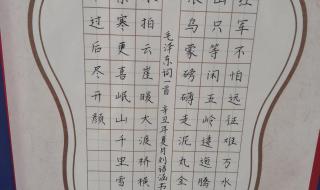 红军不怕远征难万水
山只等闲五岭逶迤腾
浪乌蒙磅礴走泥丸金
毛泽东词一首 辛丑年夏月刘语涵书
拍云崖暖大渡桥横
索寒更喜岷山千里雪
过后尽开颜